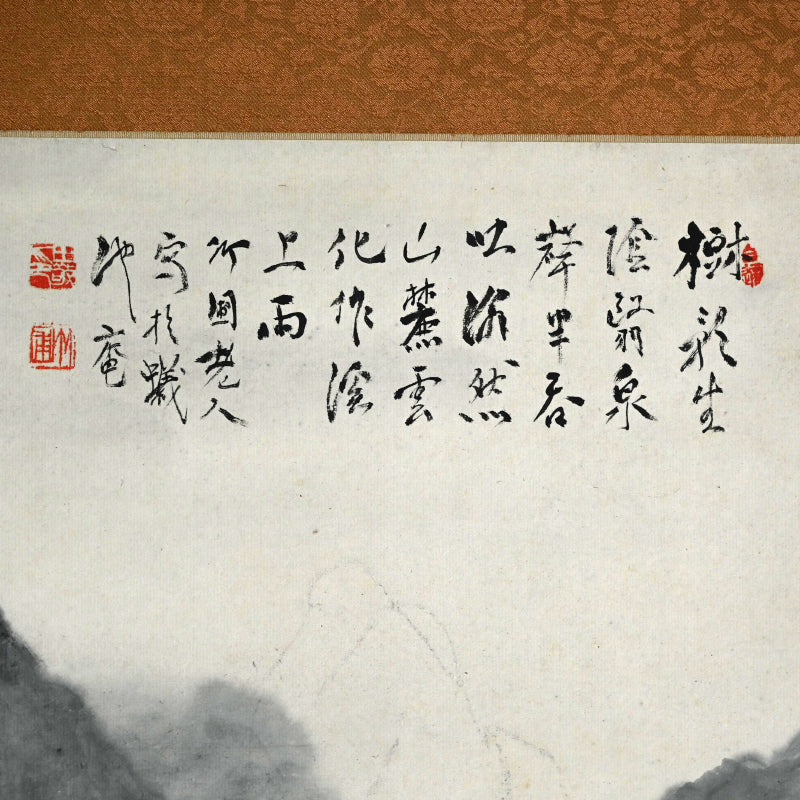 樹影生
陰翳泉
聲半吞
吐滃然
山麓雲
化作溪
上雨
竹圃老人
寫於蟻
池庵